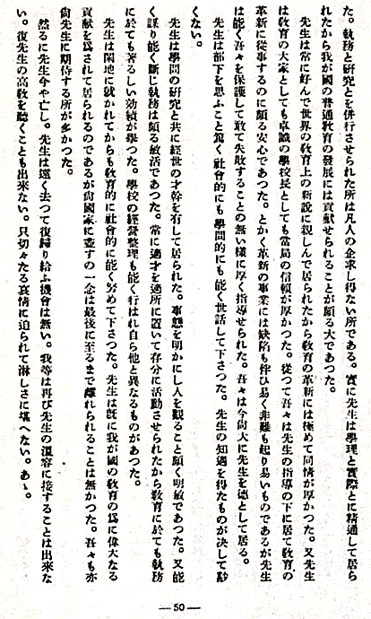 た。執務と研究とを併行させられた所は凡人の企求し得ない所である。實に先生は學理と實際とに精通して居ら
れたから我が國の普通教育の發展には貢献せられることが頗る大であつた。
先生は常に好んで世界の教育上の新說に親しんで居られたから教育の革新には極めて同情が厚かつた。又先生
は教育の大家としても卓識の學校長としても當局の信頼が厚かつた。從つて吾々は先生の指導の下に居て教育の
革新に從事するのに頗る安心であつた。とかく革新の事業には缺陷も伴ひ易く非難も起り易いものであるが先生
は能く吾々を保護して敢て失敗することの無い樣に厚く指導せられた。吾々は今尙大に先生を德として居る。
先生は部下を思ふこと篤く社會的にも學問的にも能く世話して下さつた。先生の知遇を得たものが決して尠
くない。
先生は學問の研究と共に經世の才幹を有して居られた。事態を明かにし人を觀ること頗く明敏であつた。又能
く謀り能く斷じ執務は頗る敏活であつた。常に適才を適所に置いて存分に活動させられたから教育に於ても執務
に於ても著るしい効績が擧つた。學校の經營整理も能く行はれ自ら他と異なるものがあつた。
先生は閑地に就かれてからも教育的に社會的に能く努めて下さつた。先生は旣に我が國の教育の爲に偉大なる
貢献を爲されて居られるのであるが尙國家に盡すの一念は最後に至るまで離れられることは無かつた。吾々も亦
尙先生に期待する所が多かつた。
然るに先生今や亡し。先生は遠く去つて復歸り給ふ機會は無い。我等は再び先生の溫容に接することは出來な
い。復先生の高教を聽くことも出來ない。只切々たる哀情に迫られて淋しさに堪へない。あゝ。
— 50 —